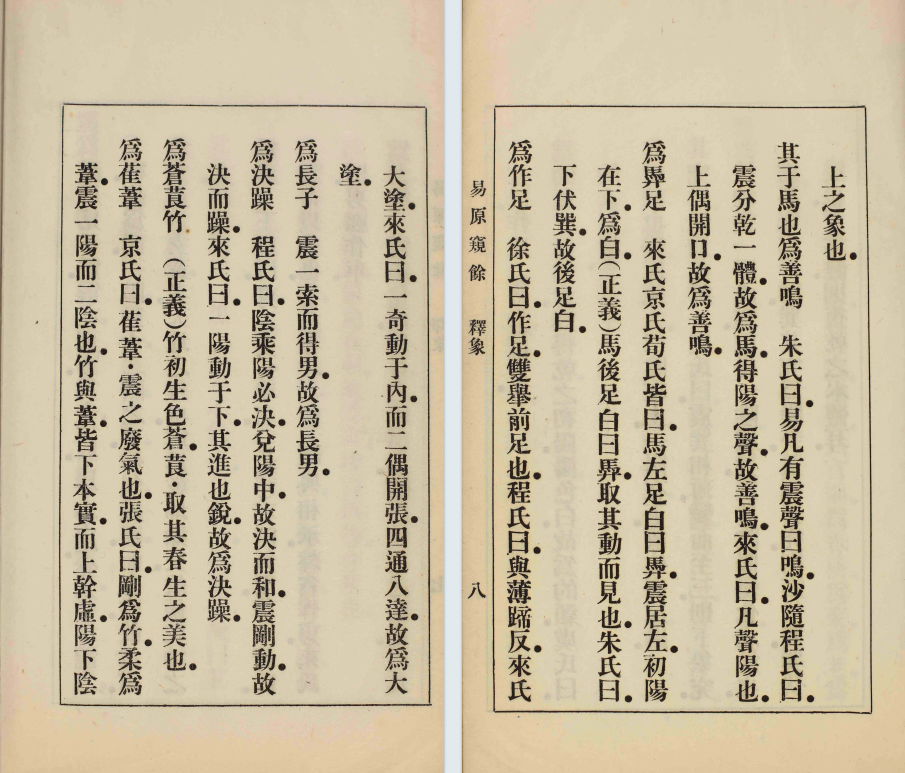 上之象也。
其于馬也爲善鳴　朱氏曰。易凡有震聲曰鳴。沙隨程氏曰。
震分乾一體。故爲馬。得陽之聲。故善鳴。來氏曰。凡聲陽也。
上偶開口。故爲善鳴。
爲馵足　來氏京氏荀氏皆曰。馬左足白曰馵。震居左。初陽
在下。爲白。（正義）馬後足白曰馵。取其動而見也。朱氏曰。
下伏巽。故後足白。
爲作足　徐氏曰。作足。雙舉前足也。程氏曰。與薄蹄反。來氏
易原窺餘　釋象　八
大塗。來氏曰。一奇動于內。而二偶開張。四通八達。故爲大
塗。
爲長子　震一索而得男。故爲長男。
爲決躁　程氏曰。陰乘陽必決。兌陽中。故決而和。震剛動。故
決而躁。來氏曰。一陽動于下。其進也銳。故爲決躁。
爲蒼莨竹　（正義）竹初生色蒼莨・取其春生之美也。
爲萑葦　京氏曰。萑葦・震之廢氣也。張氏曰。剛爲竹。柔爲
葦。震一陽而二陰也。竹與葦。皆下本實。而上幹虛。陽下陰